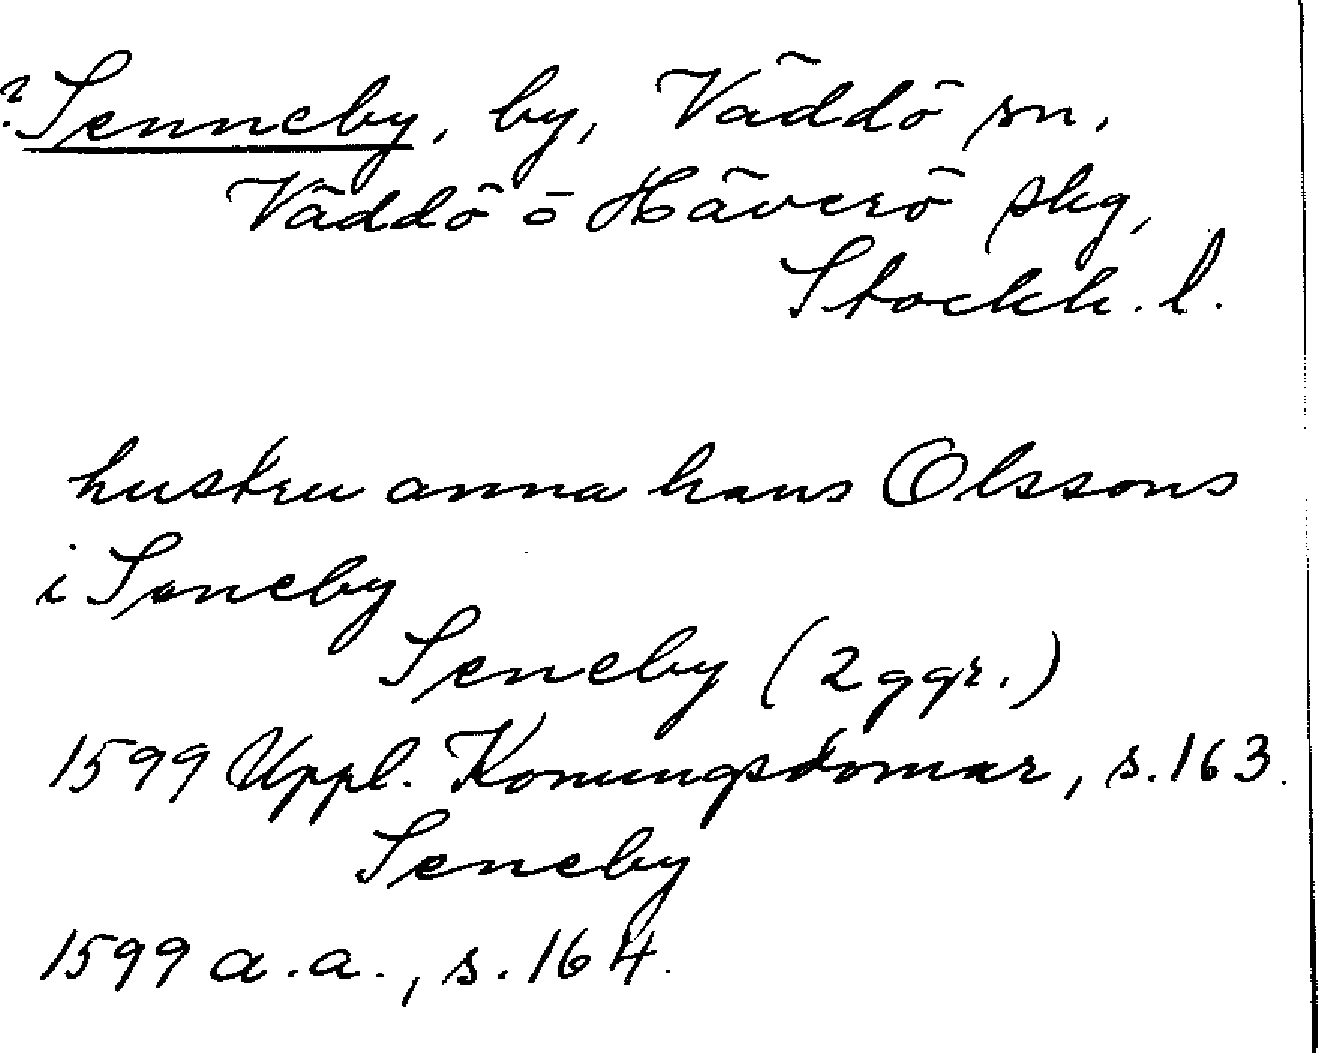 ? Senneby, by, Väddö sn,
Väddö o Häverö skg,
Stockh. l.
hustru anna hans Olssons
i Seneby
Seneby (2 ggr.)
1599 Uppl. Konungsdomar, s. 163.
Seneby
1599 a.a., s. 164.